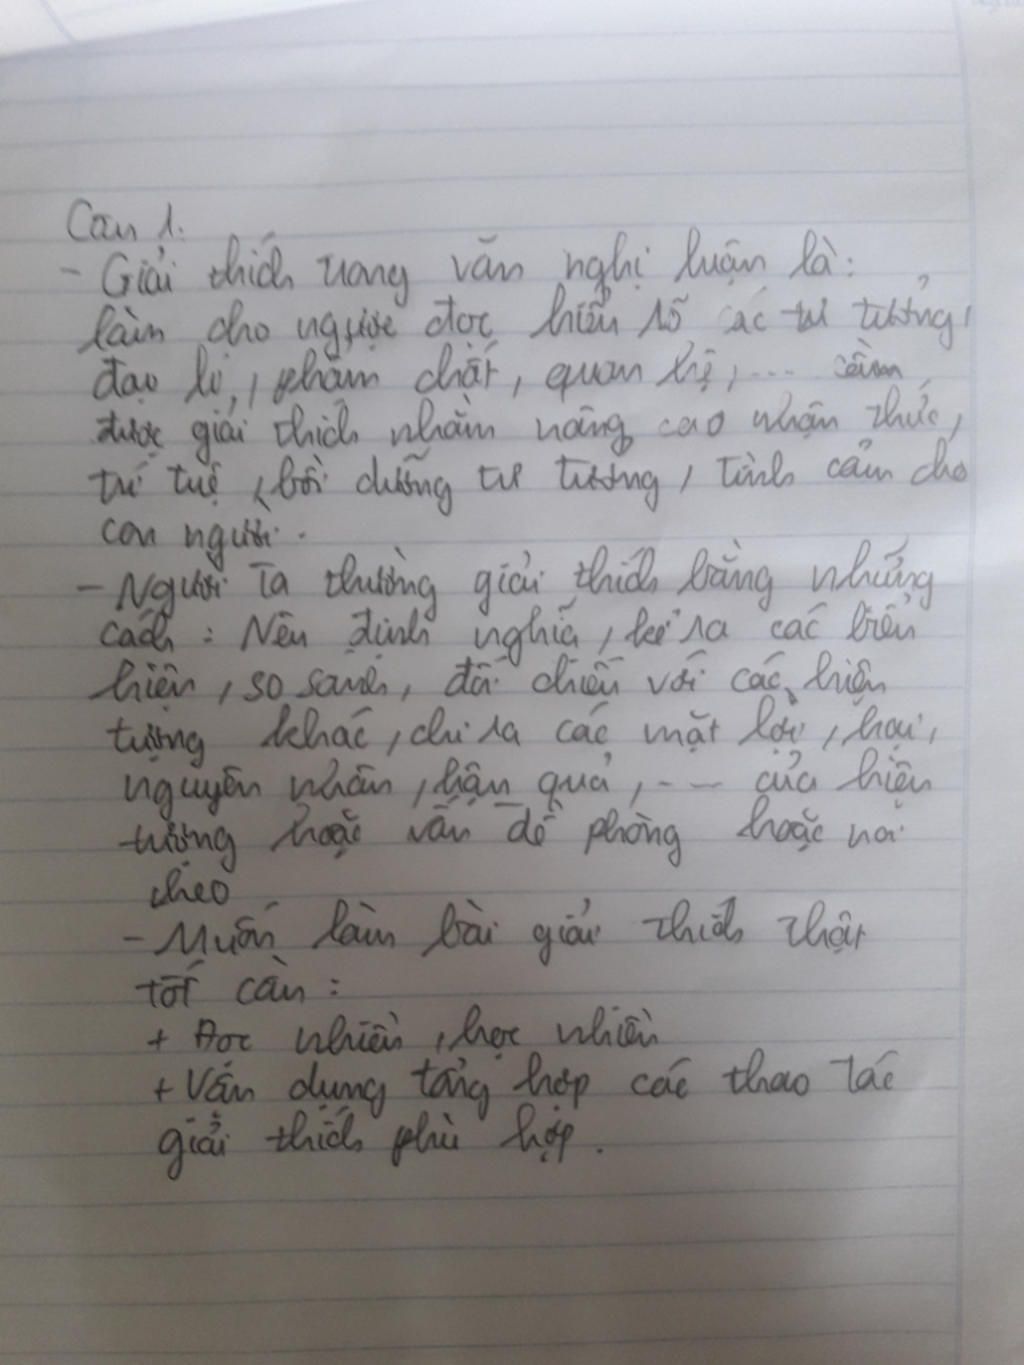 Câu 1:
- Giải thích trong văn nghị luận là:
làm cho người đọc hiểu rõ các tư tưởng,
đạo lí, phẩm chất, quan hệ, ... cần
được giải thích nhằm nâng cao nhận thức,
trí tuệ, bồi dưỡng tư tưởng, tình cảm cho
con người.
- Người ta thường giải thích bằng những
cách: Nêu định nghĩa, kể ra các biểu
hiện, so sánh, đối chiếu với các hiện
tượng khác, chỉ ra các mặt lợi, hại,
nguyên nhân, hậu quả, ... của hiện
tượng hoặc vấn đề phòng hoặc noi
theo
- Muốn làm bài giải thích thật
tốt cần:
+ Đọc nhiều, học nhiều
+ Vận dụng tổng hợp các thao tác
giải thích phù hợp.